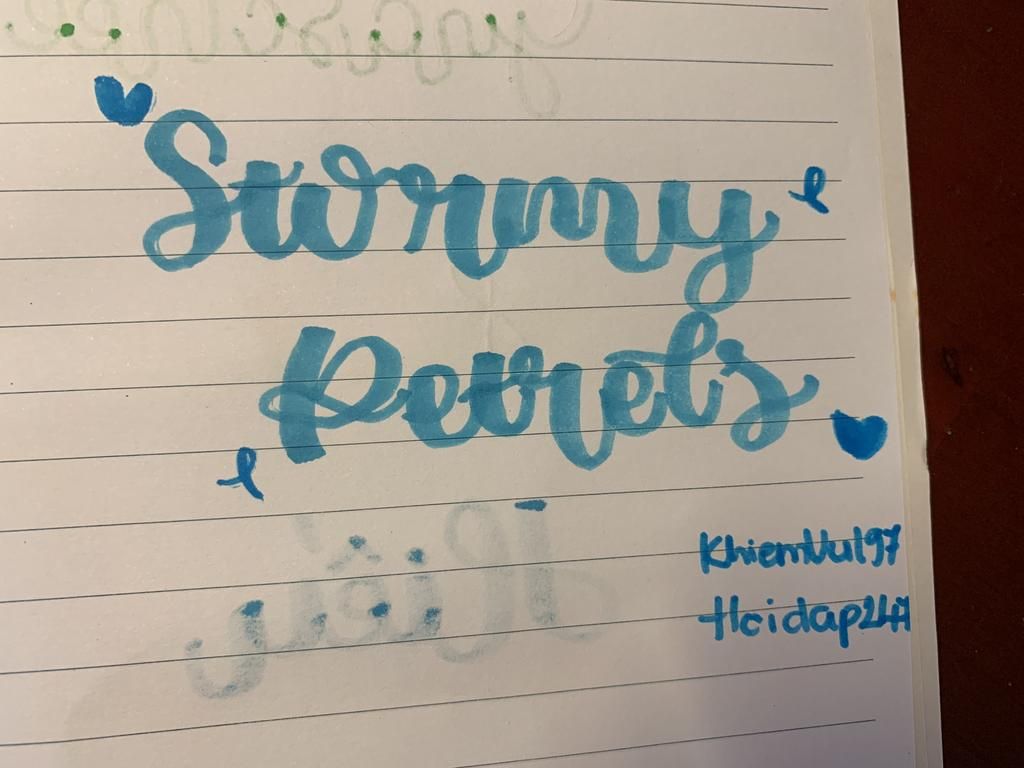 Stormy
Petrels
KhiemVu197
Hoidap247